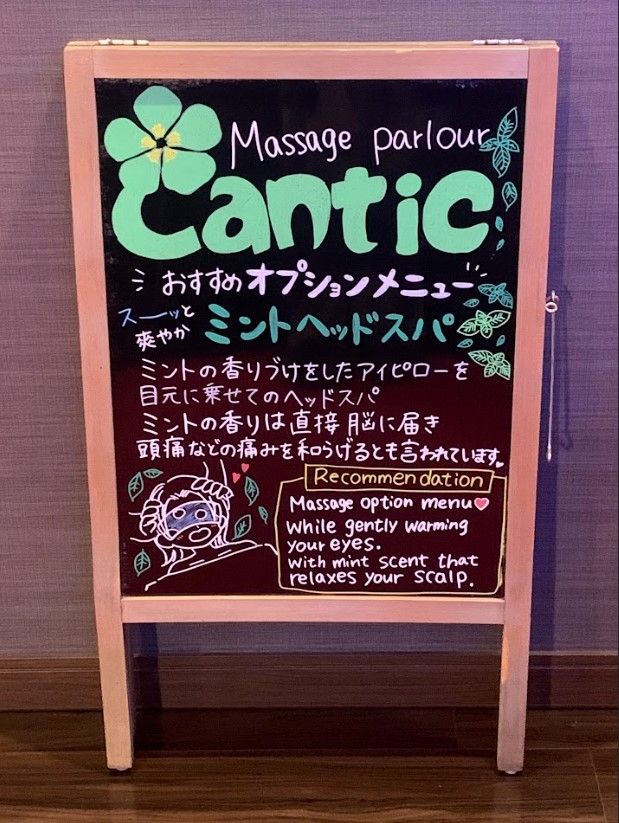 Massage parlour
Cantic
おすすめオプションメニュー
スーッと
爽やか
ミントヘッドスパ
ミントの香りづけをしたアイピローを
目元に乗せてのヘッドスパ
ミントの香りは直接脳に届き
頭痛などの痛みを和らげるとも言われています。
Recommendation
Massage option menu♥
While gently warming
your eyes.
With mint scent that
relaxes your scalp.